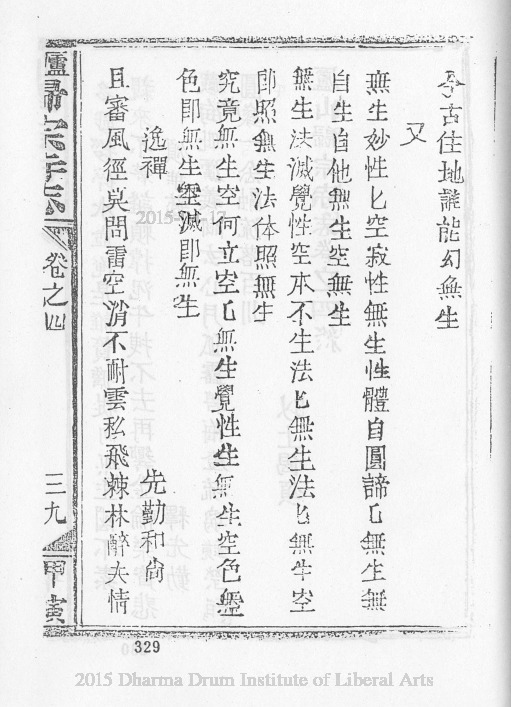 今古住地誰能幻無生
又
無生妙性匕空寂性無生性體自圓諦匕無生無
自生自他無生空無生
無生法滅覺性空本不生法匕無生法匕無生空
即照無生法体照無生
究竟無生空何立空匕無生覺性生無生空色無
色即無生空滅即無生
逸禪
先勤和尙
且審風徑莫問雷空消不耐雲私飛棘林醉夫情
廬歸宗寺志
卷之四
三九
甲寅
329
2015 Dharma Drum Institute of Liberal Arts